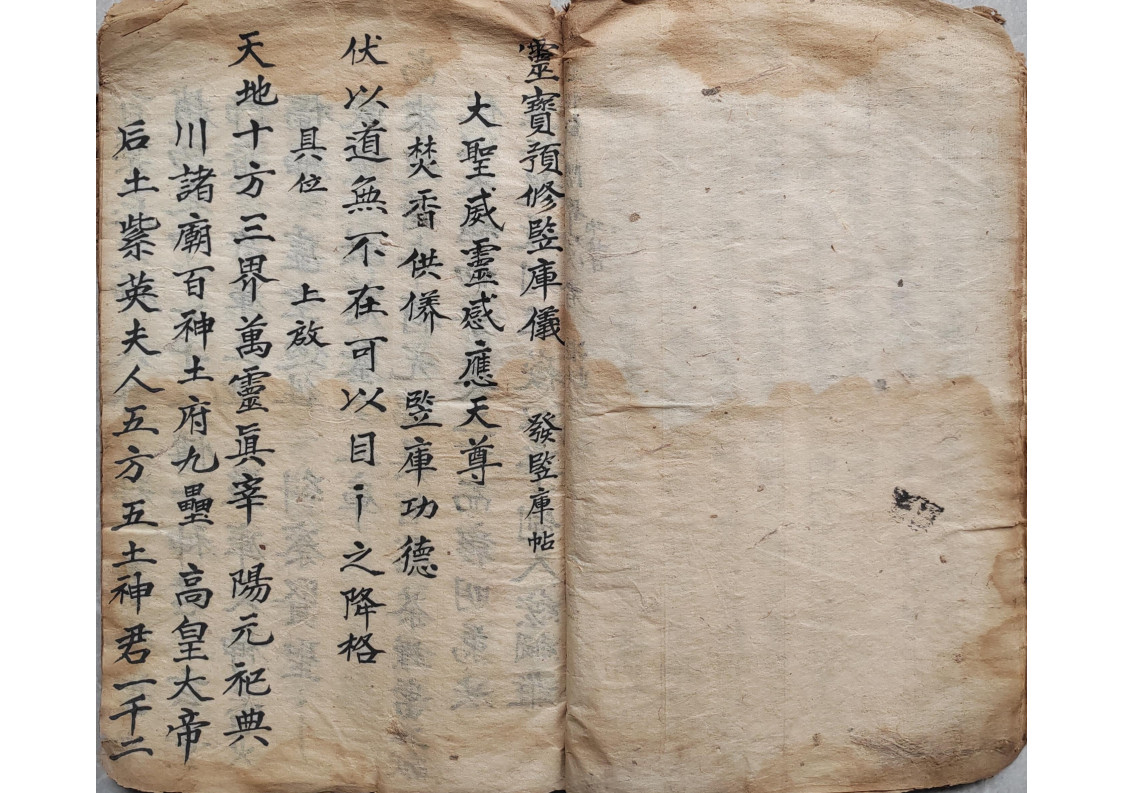 靈寶預修監庫儀 發監庫帖
大聖威靈感應天尊
焚香供養 監庫功德
伏以道無不在可以目卩之降格
具位 上啟
天地十方三界萬靈眞宰 陽元祀典
川諸廟百神土府九壘 高皇大帝
后土紫英夫人五方五土神君一千二